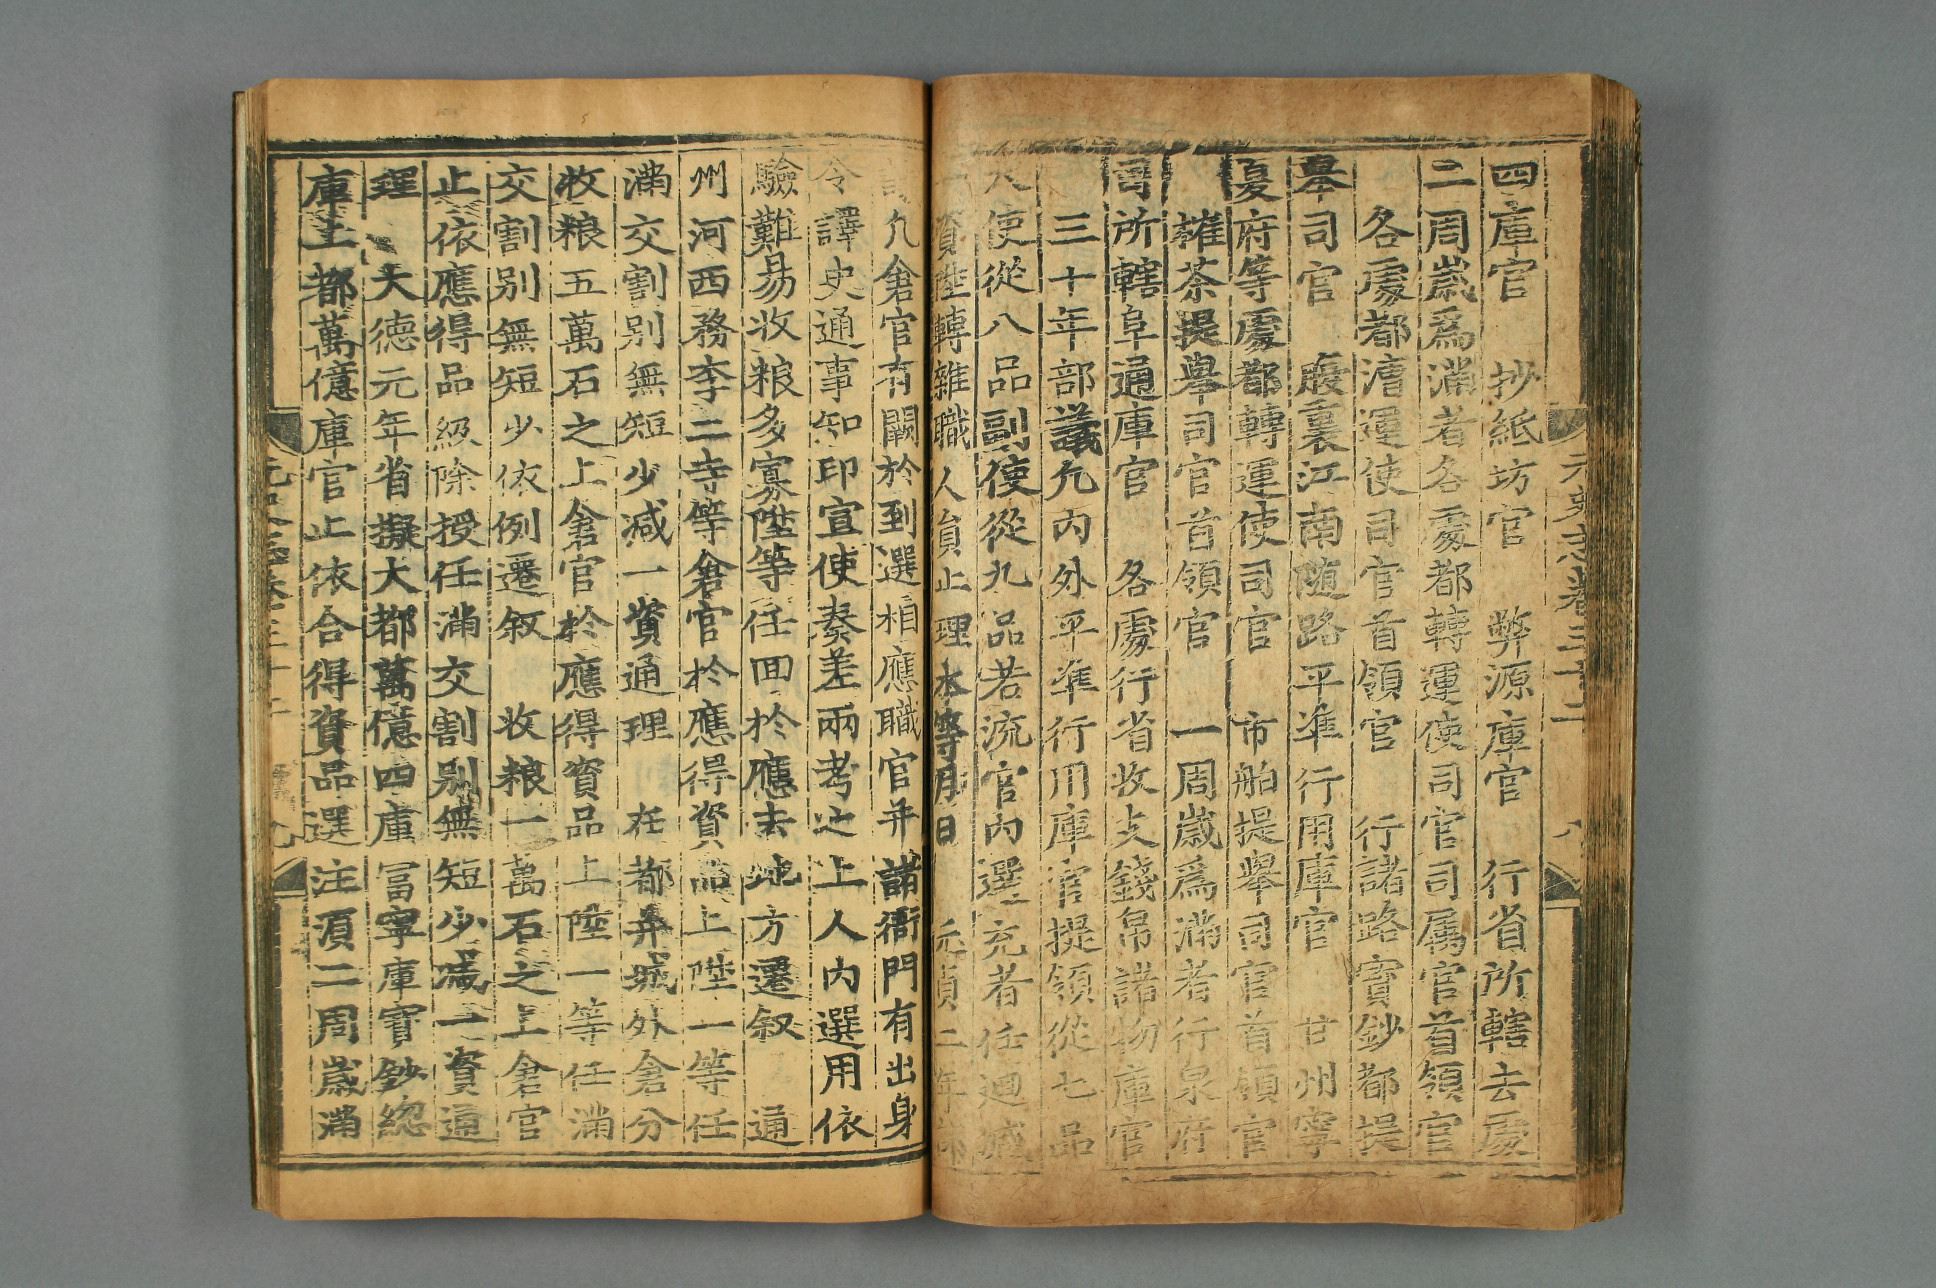 四庫官　抄紙坊官　弊源庫官　行省所轄去處
二周歲爲滿者各處都轉運使司官司属官首領官
各處都漕運使司官首領官　行諸路寳鈔都提
舉司官　腹裏江南随路平準行用庫官　甘州寧
夏府等處都轉運使司官　市舶提舉司官首領官
榷茶提舉司官首領官　一周歲爲滿者行泉府
司所轄阜通庫官　各處行省收支錢帛諸物庫官
三十年部議凢内外平準行用庫官提領從七品
大使從八品副使從九品若流官内選充者任迴减
一資陞轉雜職人員止理本等月日　元貞二年部
議凢倉官有闕於到選相應職官并諸衙門有出身
令譯史通事知印宣使奏差兩考之上人内選用依
驗難易收粮多寡陞等任回於應去地方遷叙　通
州河西務李二寺等倉官於應得資品上陞一等任
滿交割别無短少减一資通理　在都并城外倉分
收粮五萬石之上倉官於應得資品上陞一等任滿
交割别無短少依例遷叙　收粮一萬石之上倉官
止依應得品級除授任滿交割别無短少减一資通
理　大德元年省擬大都萬億四庫冨寧庫寳鈔緫
庫上都萬億庫官止依合得資品選注湏二周歲滿
元史志卷三十二　八